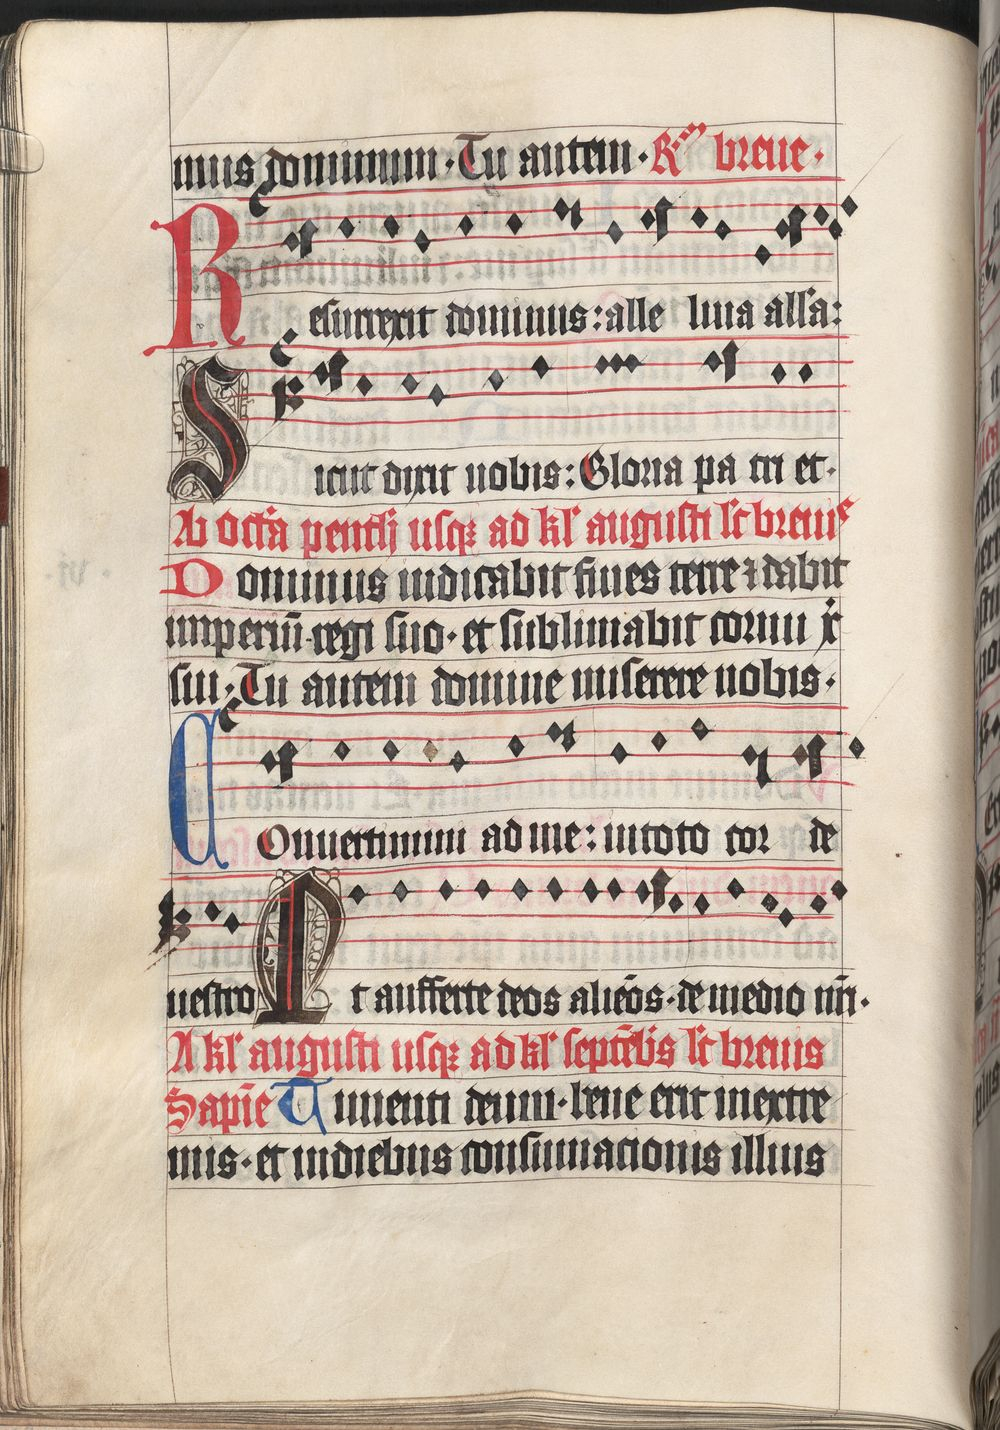 mus dominum · Tu autem · R̃ breue ·
Resurrexit dominus : alle luia all'a :
Sicut dixit uobis : Gloria pa tri et ·
Ab octa penth usqꝫ ad kl' augusti lc̃ breuis
Dominus iudicabit fines terre ⁊ dabit
imperiũ regi suo · et sublimabit cornu xp̃i
sui · Tu autem domine miserere nobis ·
Conuertimini ad me : intoto cor de
uestro Et aufferte deos alieõs · de medio ur̃i ·
A kl' augusti usqꝫ ad kl' septẽbis lc̃ breuis
Sapiẽ Timenti deum · bene erit inextre
mis · et indiebus consumacionis illius